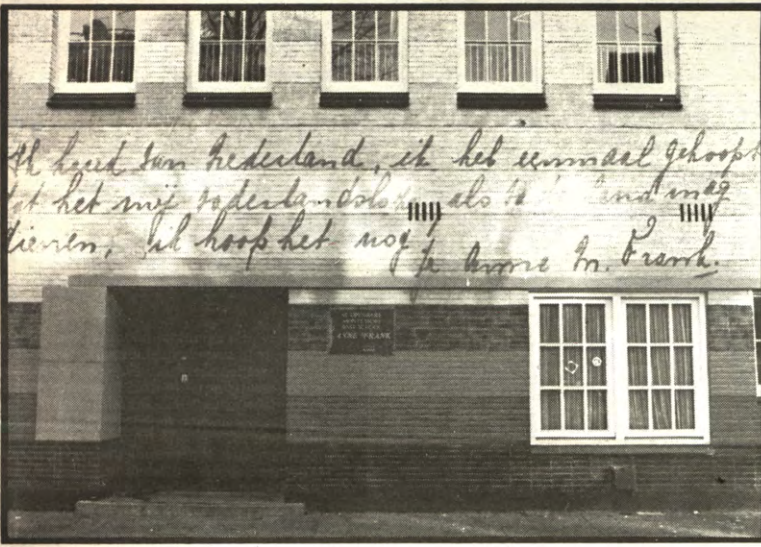 Ik houd van Nederland, ik heb eenmaal gehoopt
dat het mij vaderlandsloze als vaderland mag
dienen, ik hoop het nog
Anne M. Frank.
ANNE FRANK